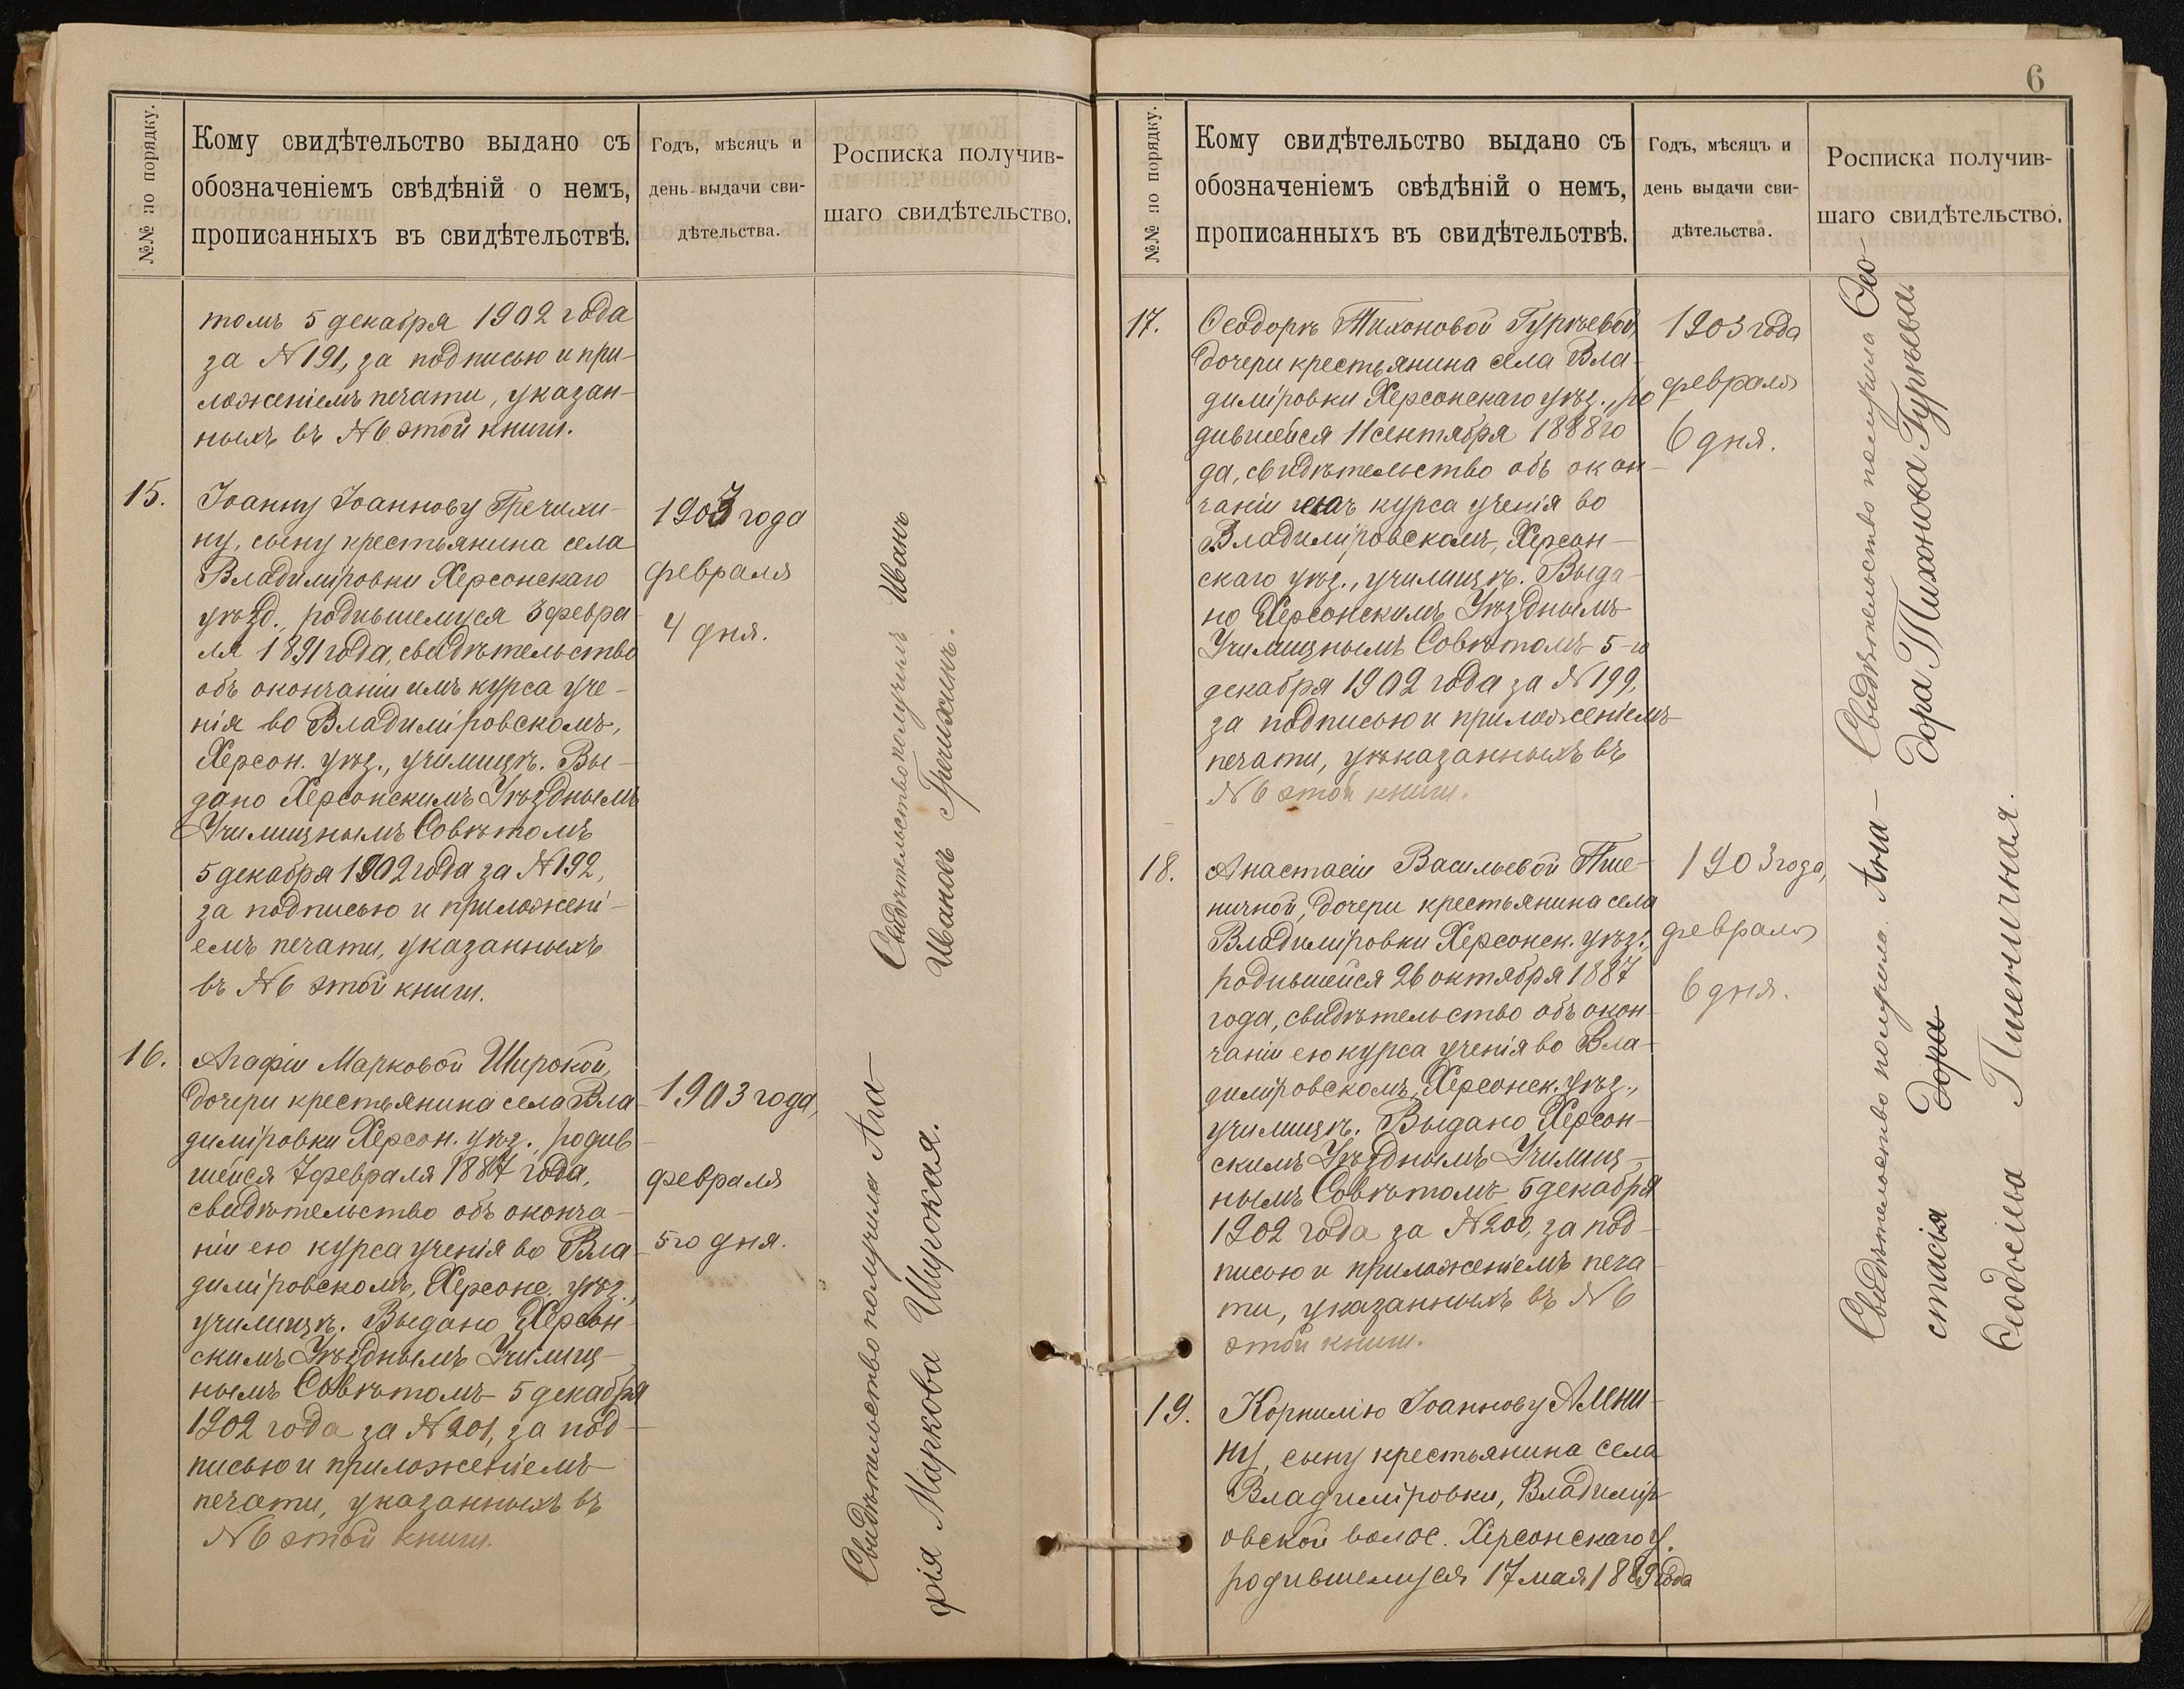 №№ по порядку.
Кому свидѣтельство выдано съ
обозначеніемъ свѣдѣній о немъ,
прописанныхъ въ свидѣтельствѣ.
Годъ, мѣсяцъ и
день выдачи сви-
дѣтельства.
Росписка получив-
шаго свидѣтельство.
томъ 5 декабря 1902 года
за N 191, за подписью и при-
ложеніемъ печати, указан-
ныхъ въ N 6 этой книги.
15.
Іоанну Іоаннову Гречихи-
ну, сыну крестьянина села
Владиміровки Херсонскаго
уѣзд., родившемуся 3 февра-
ля 1891 года, свидѣтельство
объ окончаніи имъ курса уче-
нія во Владиміровскомъ,
Херсон. уѣз., училищѣ. Вы-
дано Херсонскимъ Уѣзднымъ
Училищнымъ Совѣтомъ
5 декабря 1902 года за N 192,
за подписью и приложені-
емъ печати, указанныхъ
въ N 6 этой книги.
1903 года
февраля
4 дня.
Свидѣтельство получилъ Иванъ
Ивановъ Гречихинъ.
16.
Агафіи Марковой Широкой,
дочери крестьянина села Вла-
диміровки Херсон. уѣз., родив-
шейся 7 февраля 1887 года,
свидѣтельство объ оконча-
ніи ею курса ученія во Вла-
диміровскомъ, Херсонс. уѣз.,
училищѣ. Выдано Херсон-
скимъ Уѣзднымъ Училищ-
нымъ Совѣтомъ 5 декабря
1902 года за N 201, за под-
писью и приложеніемъ
печати, указанныхъ въ
N 6 этой книги.
1903 года,
февраля
5го дня.
Свидѣтельство получила Ага-
фія Маркова Широкая.
6
№№ по порядку.
Кому свидѣтельство выдано съ
обозначеніемъ свѣдѣній о немъ,
прописанныхъ въ свидѣтельствѣ.
Годъ, мѣсяцъ и
день выдачи сви-
дѣтельства.
Росписка получив-
шаго свидѣтельство.
17.
Ѳеодорѣ Тихоновой Гурѣевой,
дочери крестьянина села Вла-
диміровки Херсонскаго уѣз., ро
дившейся 11 сентября 1888 го
да, свидѣтельство объ окон-
чаніи курса ученія во
Владиміровскомъ, Херсон-
скаго уѣз., училищѣ. Выда-
но Херсонскимъ Уѣзднымъ
Училищнымъ Совѣтомъ 5-го
декабря 1902 года за N 199,
за подписью и приложеніемъ
печати, указанныхъ въ
N 6 этой книги.
1903 года
февраля
6 дня.
Свидѣтельство получила Ѳео-
дора Тихонова Гурѣева.
18.
Анастасіи Васильевой Пше-
ничной, дочери крестьянина села
Владиміровки Херсонск. уѣз.,
родившейся 26 октября 1887
года, свидѣтельство объ окон-
чаніи ею курса ученія во Вла-
диміровскомъ, Херсонск. уѣз.,
училищѣ. Выдано Херсон-
скимъ Уѣзднымъ Училищ-
нымъ Совѣтомъ 5 декабря
1902 года за N 200, за под-
писью и приложеніемъ печа-
ти, указанныхъ въ N 6
этой книги.
1903 года,
февраля
6 дня.
Свидѣтельство получила Ана-
стасія дора
Пшеничная.
19.
Корнилію Іоаннову Алени-
ну, сыну крестьянина села
Владиміровки, Владимір-
овской волос. Херсонскаго у.
родившемуся 17 мая 1889 года